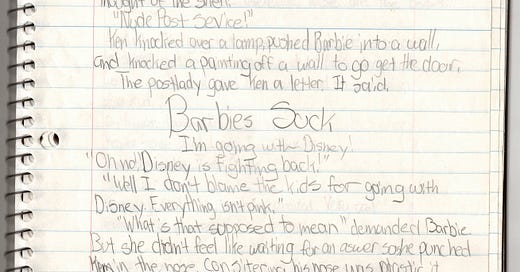 thought of the shell.
"Nude Post Service!"
Ken knocked over a lamp, pushed Barbie into a wall,
and knocked a painting off a wall to go get the door.
The postlady gave Ken a letter. It said,
Barbies Suck
I'm going with Disney!
"Oh no! Disney is fighting back!"
"Well I don't blame the kids for going with
Disney. Everything isn't pink."
"What is that supposed to mean" demanded Barbie
But she didn't feel like waiting for an aswer so she punched
Ken in the nose. Consitering his nose was plastic it